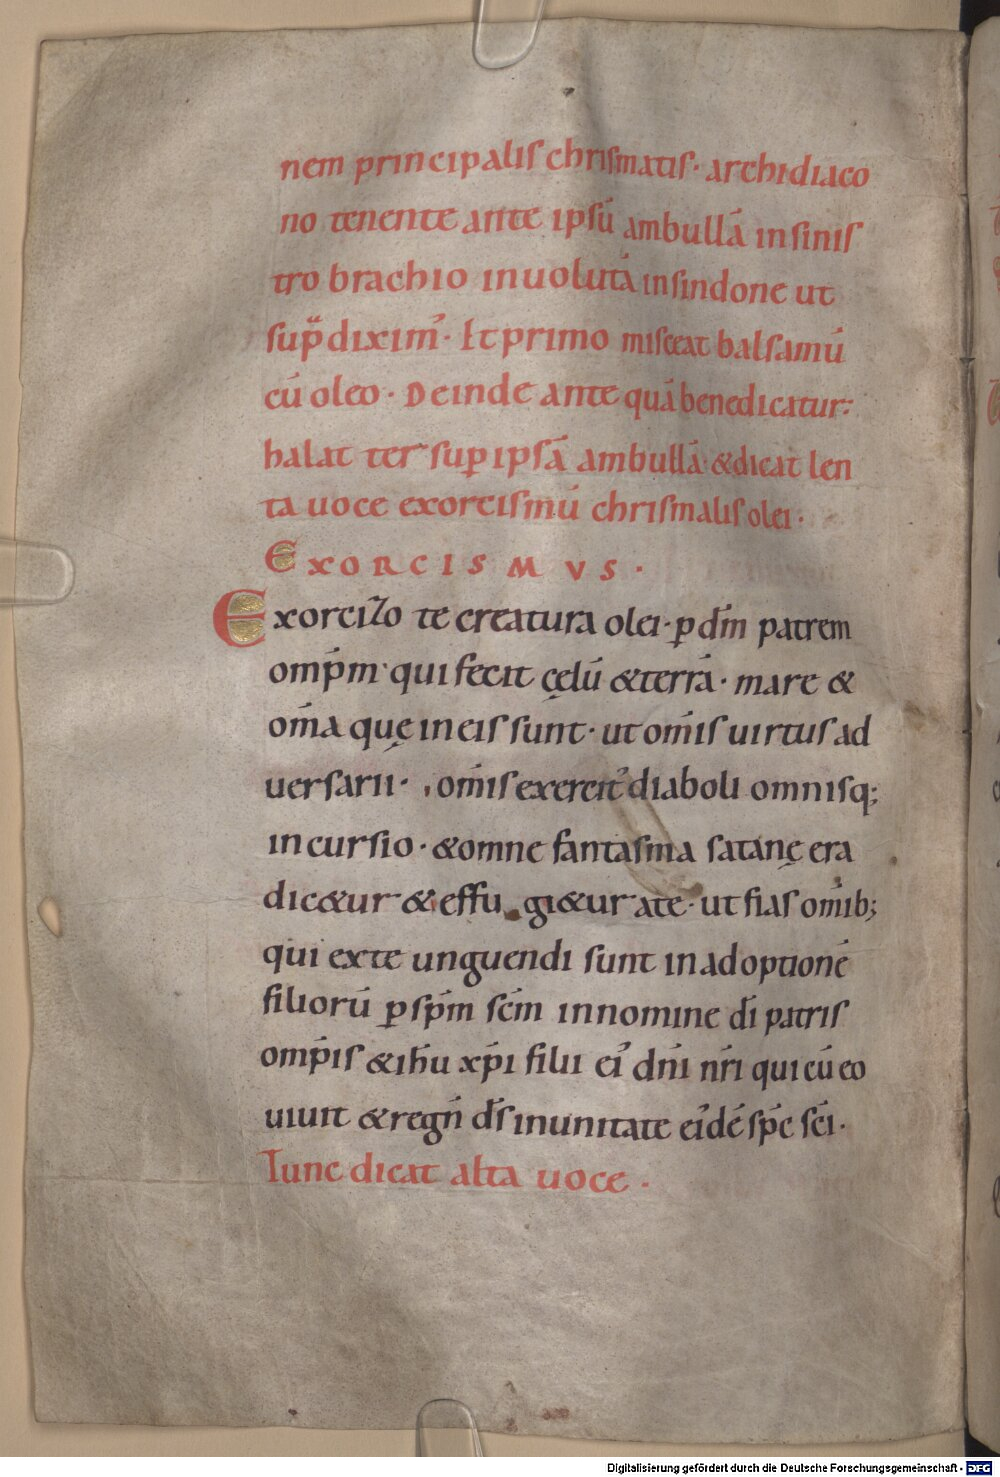 nem principalis chrismatis· archidiaco
no tenente ante ipsū ambullā insinis
tro brachio inuolutā insindone ut
sup̄ diximꝰ· Et primo misceat balsamū
cū oleo· Deinde ante quā benedicatur:
halat ter sup ipsā ambullā &dicat len
ta uoce exorcismū chrismalis olei·
EXORCISMVS·
Exorcizo te creatura olei· ꝑ dm̄ patrem
omp̄m· qui fecit cęlū &terrā· mare &
om̄a quę ineis sunt· ut om̄is uirtus ad
uersarii· om̄is exercitꝰ diaboli omnisq;
incursio· &omne fantasma satanę era
dic&ur & effu gi&ur ate· ut fias om̄ib;
qui exte unguendi sunt inadoptionē
filiorū ꝑ sp̄m sc̄m innomine dī patris
omp̄is & ih̄u xp̄i filii eiꝰ dn̄i nr̄i qui cū eo
uiuit & regn̄ ds̄ inunitate eiꝰdē sp̄c sc̄i·
Tunc dicat alta uoce·
Digitalisierung gefördert durch die Deutsche Forschungsgemeinschaft - DFG